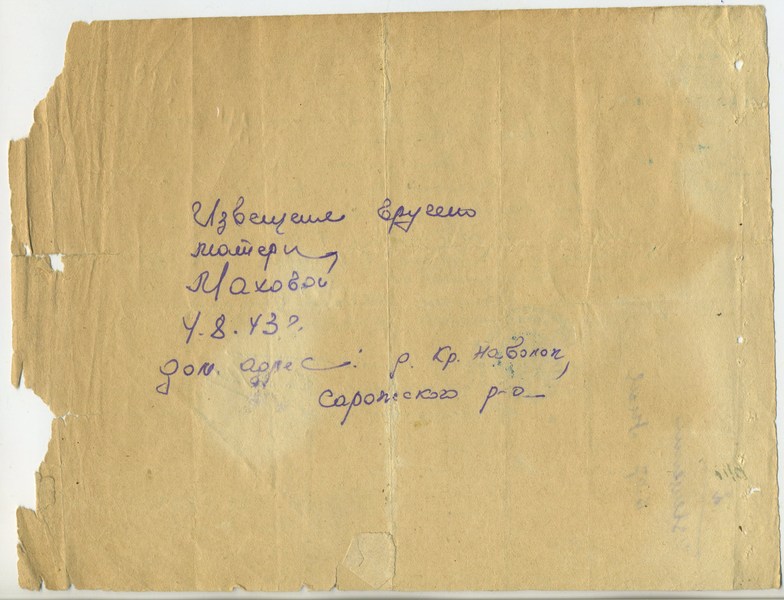 Извещение вручено
матери,
Маховой
4.8.43 г.
дом. адрес: д. Кр. Наволок,
Сарожского р-а